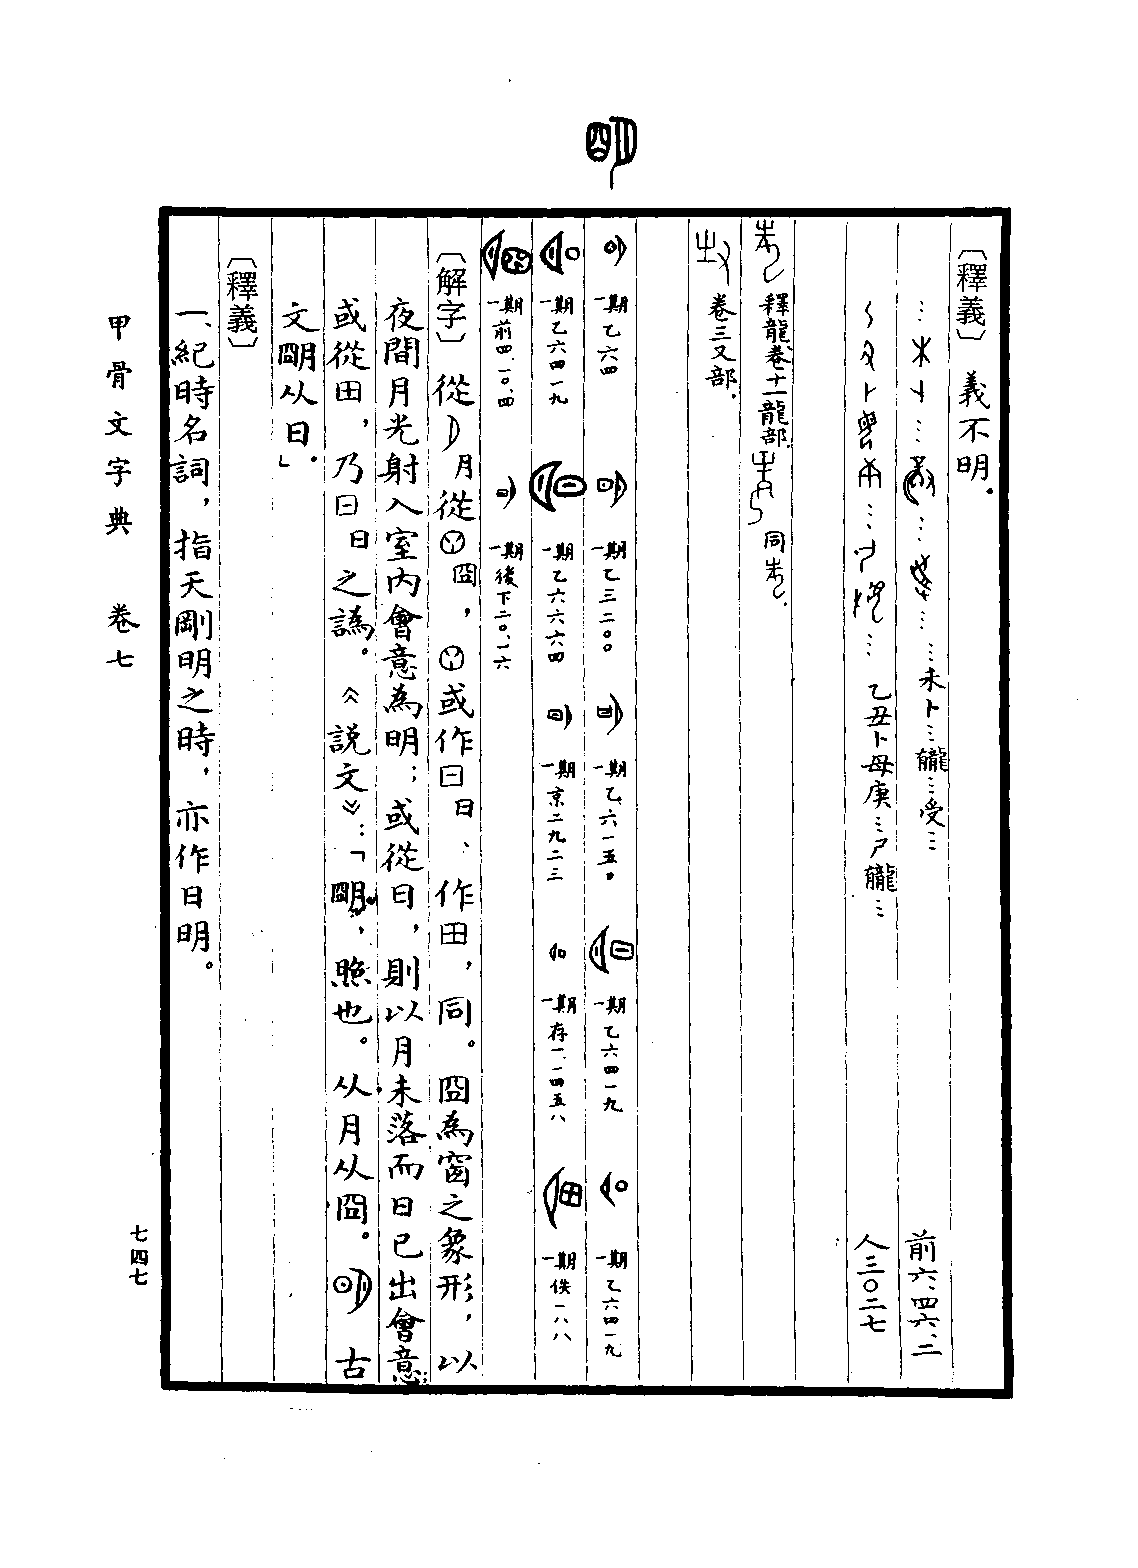 朙
〔釋義〕 義不明。
…未卜…龓…受… 前六.四六.二
乙丑卜母庚…尸龓… 人三〇二七
釋龍卷十一龍部. 同
卷三又部.
一期 乙六四 一期 乙三二〇〇 一期 乙六一五〇 一期 乙六四一九 一期 乙六四一九
一期 乙六四一九 一期 乙六六六四 一期 京二九二三 一期 存一.一四五八 一期 佚一八八
一期 前四.一〇.四 一期 後下二〇.一六
〔解字〕 從月從囧,或作日日、作田,同。囧為窗之象形,以
夜間月光射入室內會意為明;或從日,則以月未落而日已出會意;
或從田,乃日日之譌。《説文》:「朙,照也。从月从囧。古
文朙从日。」
〔釋義〕
一、紀時名詞,指天剛明之時,亦作日明。
甲骨文字典 卷七
七四七